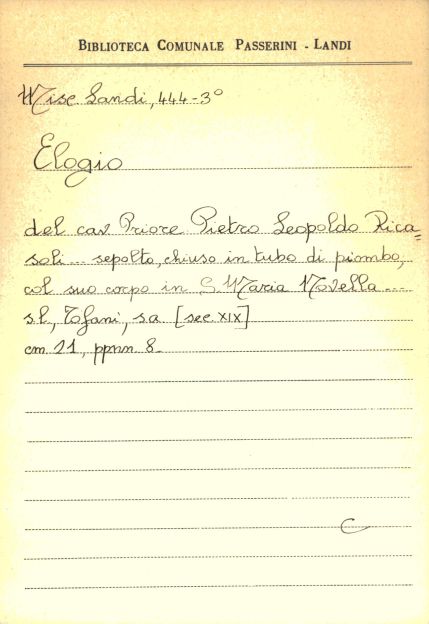 BIBLIOTECA COMUNALE PASSERINI - LANDI
Misc Landi, 444-3°
Elogio
del cav Priore Pietro Leopoldo Rica=
soli... sepolto, chiuso in tubo di piombo,
col suo corpo in S. Maria Novella ....
s.l., Tofani, s.a. [sec. XIX]
cm 21, ppnn. 8.
C